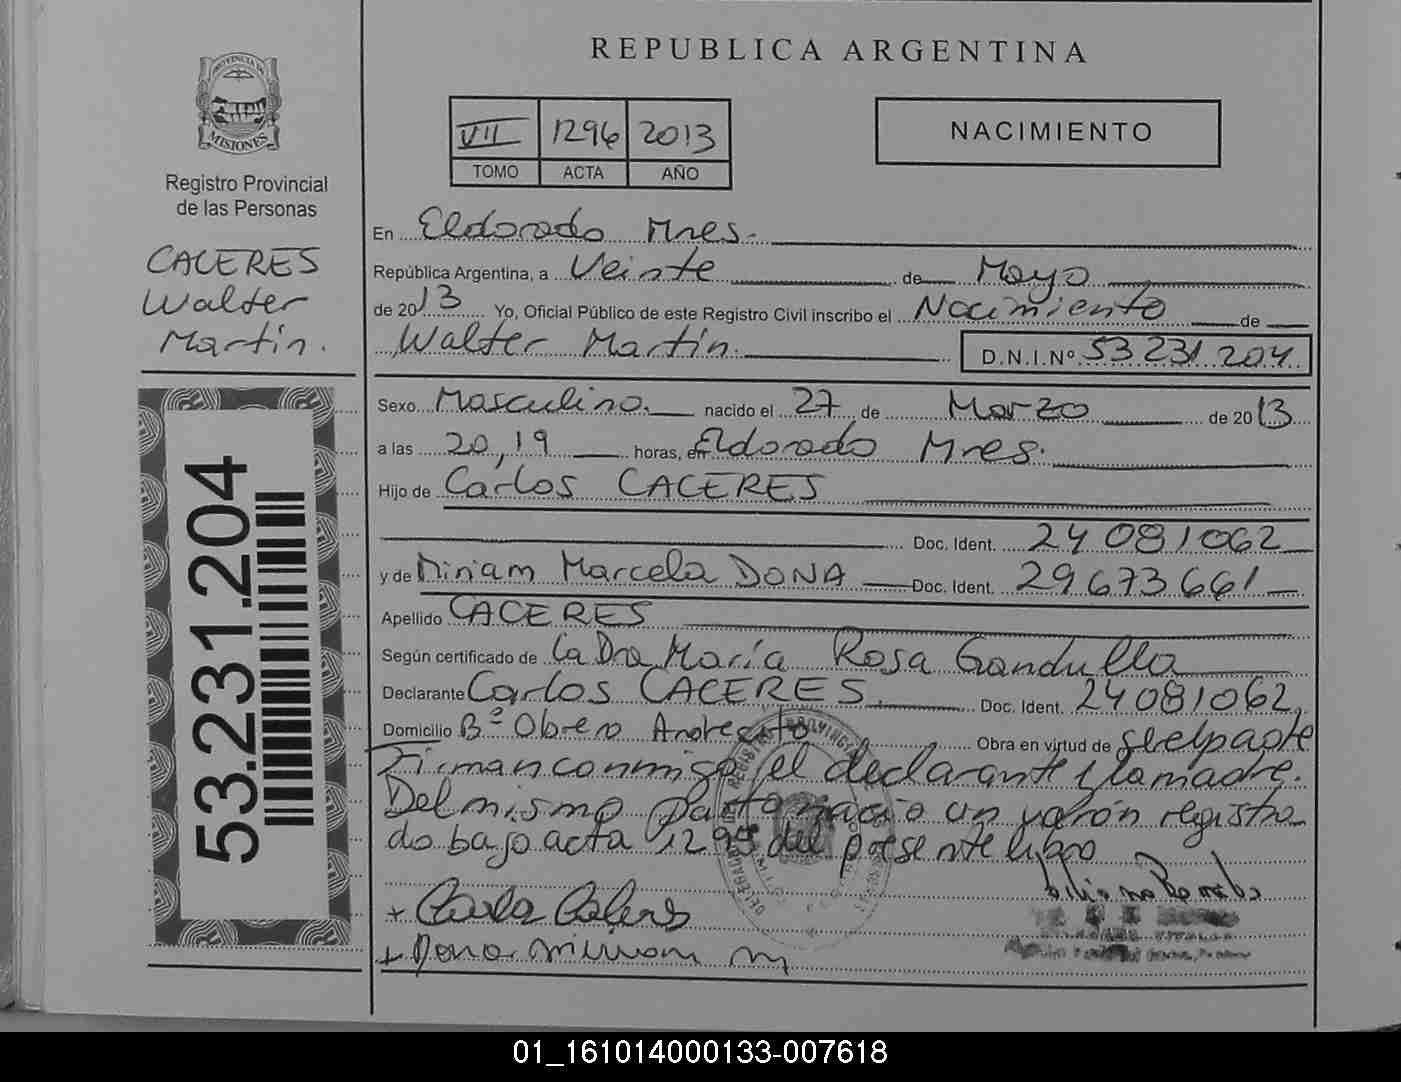 REPUBLICA ARGENTINA
PROVINCIA DE
MISIONES
Registro Provincial
de las Personas
CACERES
Walter
Martín.
53.231.204
VII 1296 2013
TOMO ACTA AÑO
NACIMIENTO
En Eldorado Mnes.
República Argentina, a Veinte de Mayo
de 2013 Yo, Oficial Público de este Registro Civil inscribo el Nacimiento de
Walter Martín. D.N.I.Nº 53 231 204
Sexo Masculino. nacido el 27 de Marzo de 2013
a las 20,19 horas, en Eldorado Mnes.
Hijo de Carlos CACERES
Doc. Ident. 24 081 062
y de Miriam Marcela DONA Doc. Ident. 29 673 661
Apellido CACERES
Según certificado de La Dra María Rosa Gandulla
Declarante Carlos CACERES Doc. Ident. 24 081 062
Domicilio Bº Obrero Andresito Obra en virtud de ser el padre
Firman conmigo el declarante y la madre.
Del mismo parto nació un varón registra
do bajo acta 1295 del presente libro
01_161014000133-007618